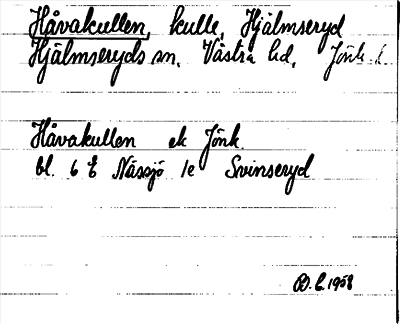 Håvakullen, kulle, Hjälmseryd
Hjälmseryds sn. Västra hd, Jönk. l.
Håvakullen ek Jönk.
bl. 6 E Nässjö 1e Svinseryd
1958